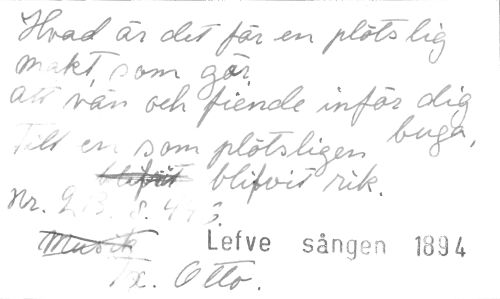 Hvad är det för en plötslig
makt, som gör,
att vän och fiende inför dig
buga,
Till en som plötsligen
blifvit rik.
Nr. 213. s. 443.
Musik Lefve sången 1894
Fx. Otto.